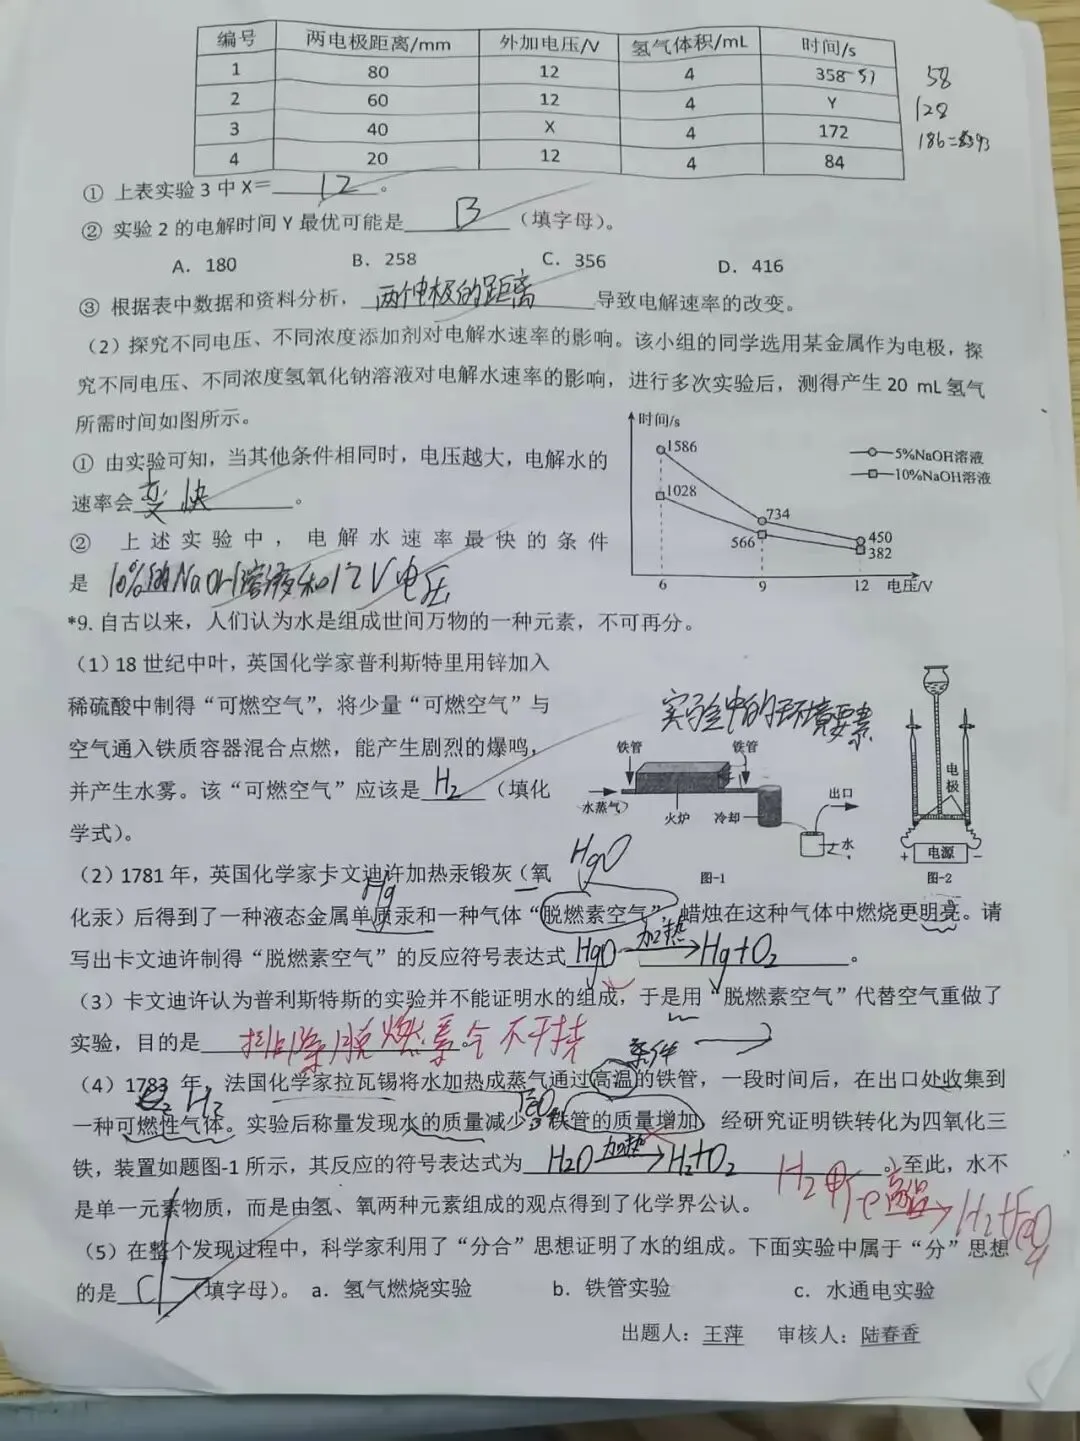 编号 两电极距离/mm 外加电压/V 氢气体积/mL 时间/s
1 80 12 4 358 51
2 60 12 4 Y
3 40 X 4 172
4 20 12 4 84
58
128
186=
① 上表实验3中X=12。
② 实验2的电解时间Y最优可能是B(填字母)。
A. 180 B. 258 C. 356 D. 416
③ 根据表中数据和资料分析，两个电极的距离导致电解速率的改变。
（2）探究不同电压、不同浓度添加剂对电解水速率的影响。该小组的同学选用某金属作为电极，探
究不同电压、不同浓度氢氧化钠溶液对电解水速率的影响，进行多次实验后，测得产生20 mL氢气
所需时间如图所示。
① 由实验可知，当其他条件相同时，电压越大，电解水的
速率会变快。
② 上述实验中，电解水速率最快的条件
是 10%的NaOH溶液和12V电压
时间/s
1586
1028
734
566
450
382
5%NaOH溶液
10%NaOH溶液
6 9 12 电压/V
*9. 自古以来，人们认为水是组成世间万物的一种元素，不可再分。
（1）18世纪中叶，英国化学家普利斯特里用锌加入
稀硫酸中制得“可燃空气”，将少量“可燃空气”与
空气通入铁质容器混合点燃，能产生剧烈的爆鸣，
并产生水雾。该“可燃空气”应该是H₂（填化
学式）。
实验中的环境要素
铁管 铁管
水蒸气 火炉 冷却 出口 水
图-1
电极
+ 电源 −
图-2
HgO
（2）1781年，英国化学家卡文迪许加热汞锻灰（氧
Hg
化汞）后得到了一种液态金属单质汞和一种气体“脱燃素空气”，蜡烛在这种气体中燃烧更明亮。请
写出卡文迪许制得“脱燃素空气”的反应符号表达式 HgO 加热→ Hg+O₂。
（3）卡文迪许认为普利斯特斯的实验并不能证明水的组成，于是用“脱燃素空气”代替空气重做了
实验，目的是 排除脱燃素空气干扰
条件
（4）1783年，法国化学家拉瓦锡将水加热成蒸气通过高温的铁管，一段时间后，在出口处收集到
H₂
一种可燃性气体。实验后称量发现水的质量减少，铁管的质量增加，经研究证明铁转化为四氧化三
铁，装置如题图-1所示，其反应的符号表达式为 H₂O 加热→ H₂+O₂。至此，水不
是单一元素物质，而是由氢、氧两种元素组成的观点得到了化学界公认。
（5）在整个发现过程中，科学家利用了“分合”思想证明了水的组成。下面实验中属于“分”思想
的是C（填字母）。 a. 氢气燃烧实验 b. 铁管实验 c. 水通电实验
出题人：王萍 审核人：陆春香